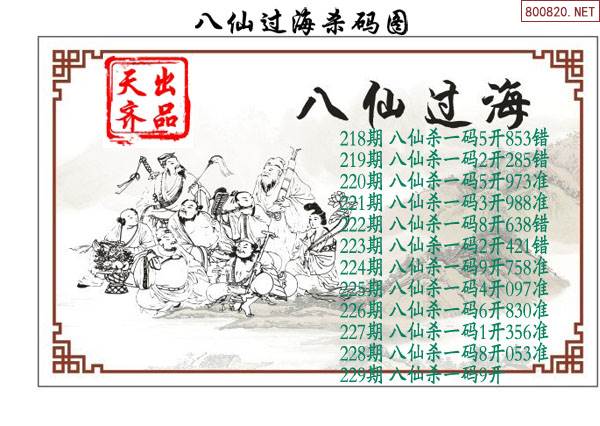 八仙过海杀码图
800820.NET
天出
齐品
八仙过海
218期 八仙杀一码5开853错
219期 八仙杀一码2开285错
220期 八仙杀一码5开973准
221期 八仙杀一码3开988准
222期 八仙杀一码8开638错
223期 八仙杀一码2开421错
224期 八仙杀一码9开758准
225期 八仙杀一码4开097准
226期 八仙杀一码6开830准
227期 八仙杀一码1开356准
228期 八仙杀一码8开053准
229期 八仙杀一码9开